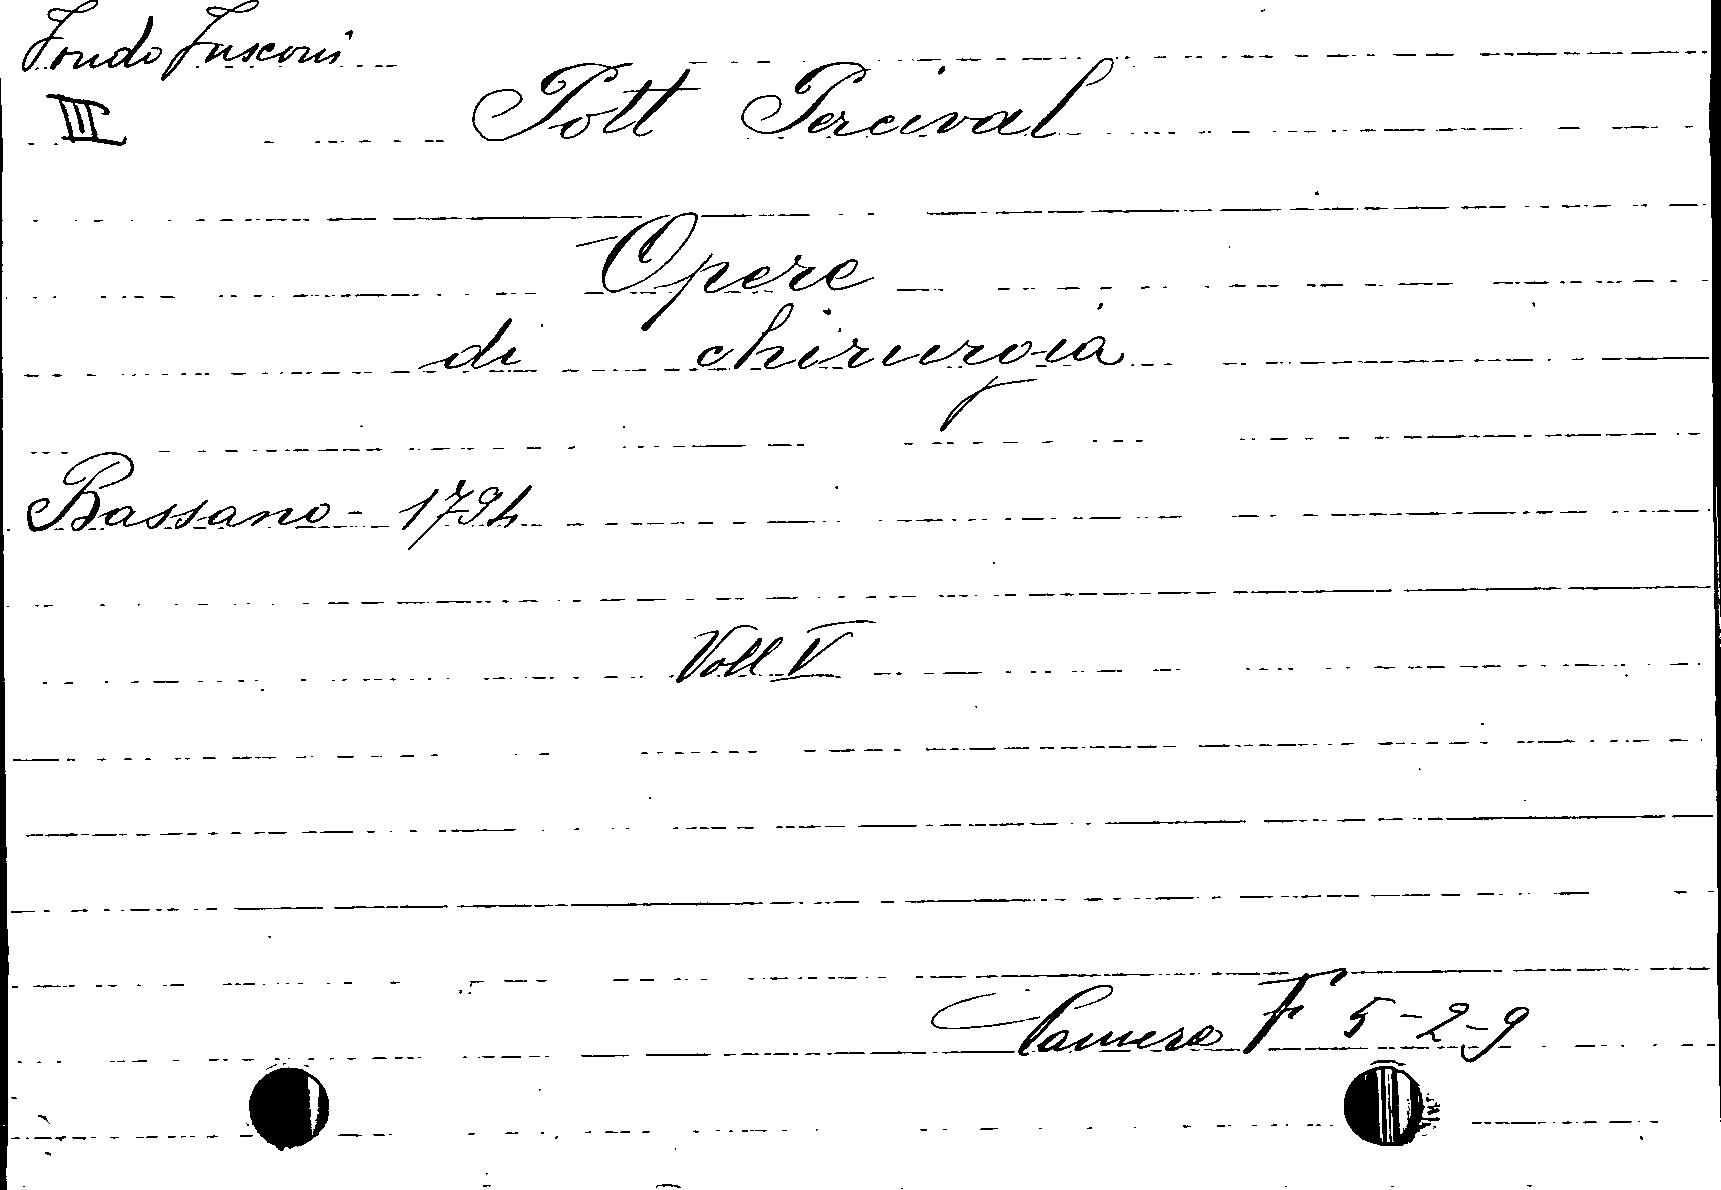 Fondo Fusconi
III
Pott Percival
Opere
di chirurgia
Bassano - 1794
Voll V
Camera F 5-2-9